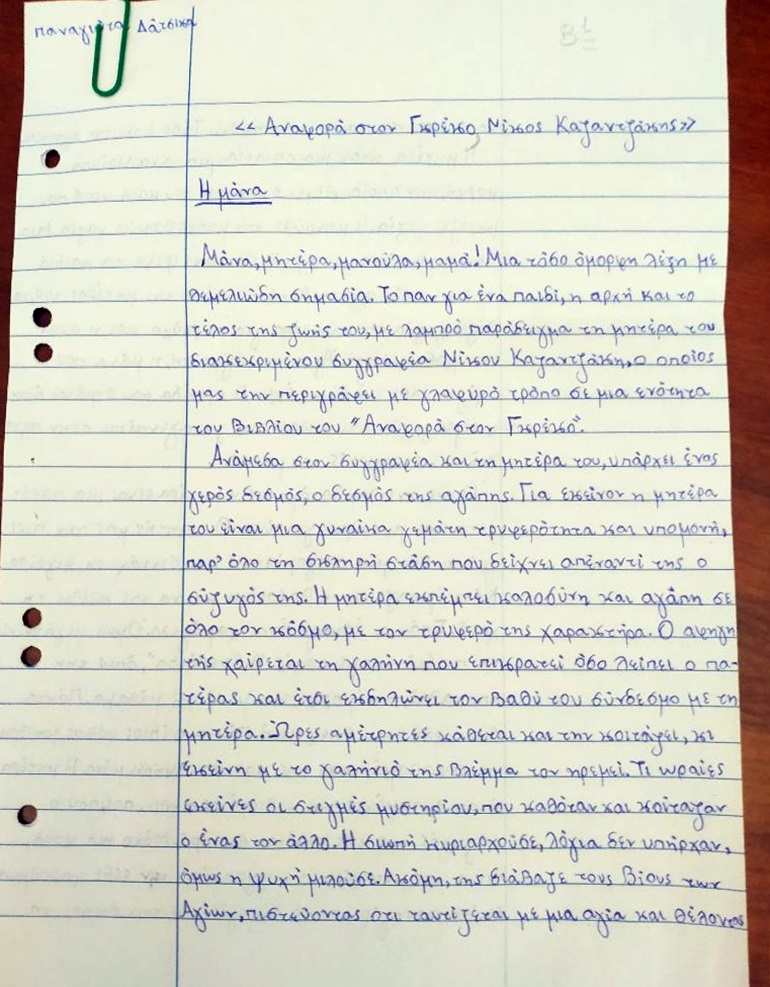 Παναγιώτα Δάτσικα
Β1
<< Αναφορά στον Γκρέκο, Νίκος Καζαντζάκης>>
Η μάνα
Μάνα, μητέρα, μανούλα, μαμά! Μια τόσο όμορφη λέξη με
θεμελιώδη σημασία. Το παν για ένα παιδί, η αρχή και το
τέλος της ζωής του, με λαμπρό παράδειγμα τη μητέρα του
διακεκριμένου συγγραφέα Νίκου Καζαντζάκη, ο οποίος
μας την περιγράφει με γλαφυρό τρόπο σε μια ενότητα
του βιβλίου του "Αναφορά στον Γκρέκο".
Ανάμεσα στον συγγραφέα και τη μητέρα του, υπάρχει ένας
γερός δεσμός, ο δεσμός της αγάπης. Για εκείνον η μητέρα
του είναι μια γυναίκα γεμάτη τρυφερότητα και υπομονή,
παρ' όλο τη σκληρή στάση που δείχνει απέναντί της ο
σύζυγός της. Η μητέρα εκπέμπει καλοσύνη και αγάπη σε
όλο τον κόσμο, με τον τρυφερό της χαρακτήρα. Ο αφηγη
τής χαίρεται τη γαλήνη που επικρατεί όσο λείπει ο πα-
τέρας και έτσι εκδηλώνει τον βαθύ του σύνδεσμο με τη
μητέρα. Ώρες αμέτρητες κάθεται και την κοιτάζει, κι
εκείνη με το γαλήνιό της βλέμμα τον ηρεμεί. Τι ωραίες
εκείνες οι στιγμές μυστηρίου, που καθόταν και κοίταζαν
ο ένας τον άλλο. Η σιωπή κυριαρχούσε, λόγια δεν υπήρχαν,
όμως η ψυχή μιλούσε. Ακόμη, της διάβαζε τους βίους των
Αγίων, πιστεύοντας ότι ταυτίζεται με μια αγία και θέλοντας